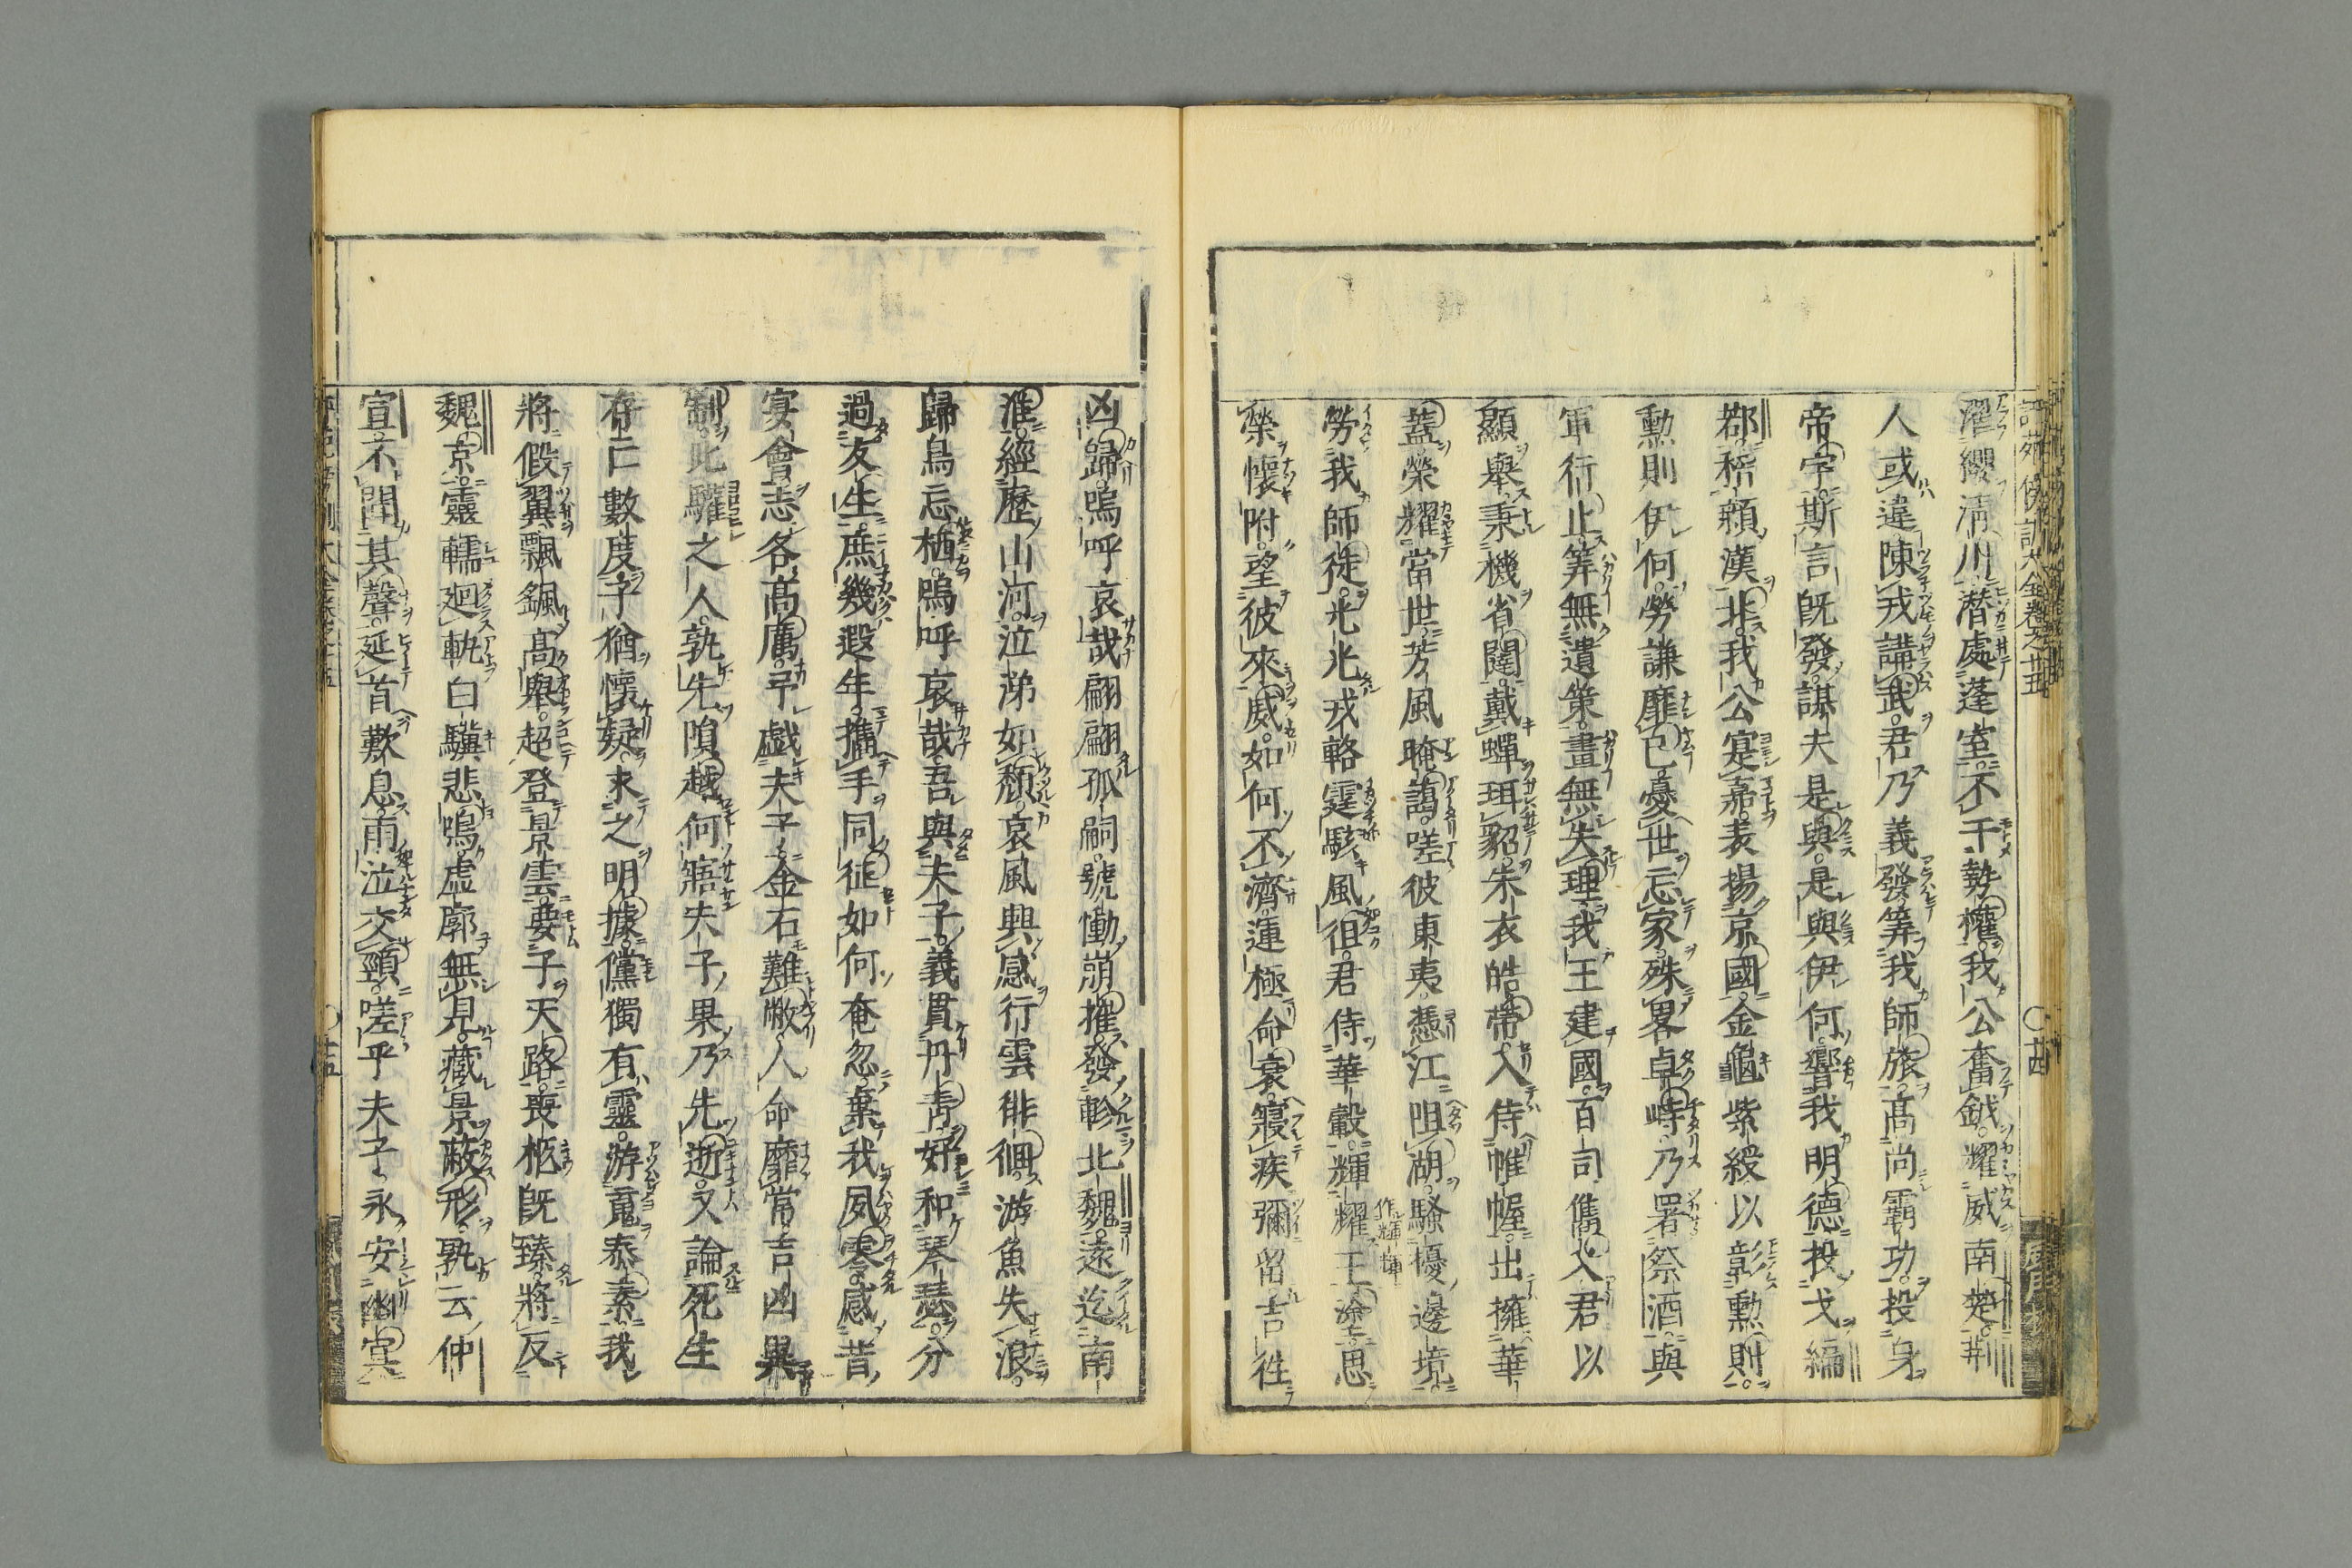 濯纓清川潜處蓬室不干勢權我公奮鉞耀威南楚荆
人或違陳戎講武君乃義發筭我師旅高尚霸功投身
帝宇斯言既發謀夫是與是與伊何響我明德投戈編
鄀稽顙漢北我公寔嘉表揚京國金龜紫綬以彰勲則
勲則伊何勞謙靡已憂世忘家殊畧卓峙乃署祭酒與
軍行止筭無遺策畫無失理我王建國百司儁乂君以
顯舉秉機省闥戴蟬珥貂朱衣皓帶入侍帷幄出擁華
蓋榮耀當世芳風晻藹嗟彼東夷憑江阻湖騷擾邊境
勞我師徒光光戎輅霆駭風徂君侍華轂輝耀王塗思
榮懷附望彼來威如何不濟運極命衰寢疾彌留吉往
凶歸嗚呼哀哉翩翩孤嗣號慟崩摧發軫北魏遠迄南
淮經歷山河泣涕如頹哀風興感行雲徘徊游魚失浪
歸鳥忘栖嗚呼哀哉吾與夫子義貫丹青好和琴瑟分
過友生庶幾遐年攜手同征如何奄忽棄我夙零感昔
宴會志各高厲予戲夫子金石難敝人命靡常吉凶異
制此驩之人孰先隕越何寤夫子果乃先逝又論死生
存亡數度子猶懷疑求之明據儻獨有靈游䰟泰素我
將假翼飄颻高舉超登景雲要子天路喪柩既臻將反
魏京靈轜廻軌白驥悲鳴虚廓無見藏景蔽形孰云仲
宣不聞其聲延首歎息雨泣交頸嗟乎夫子永安幽冥